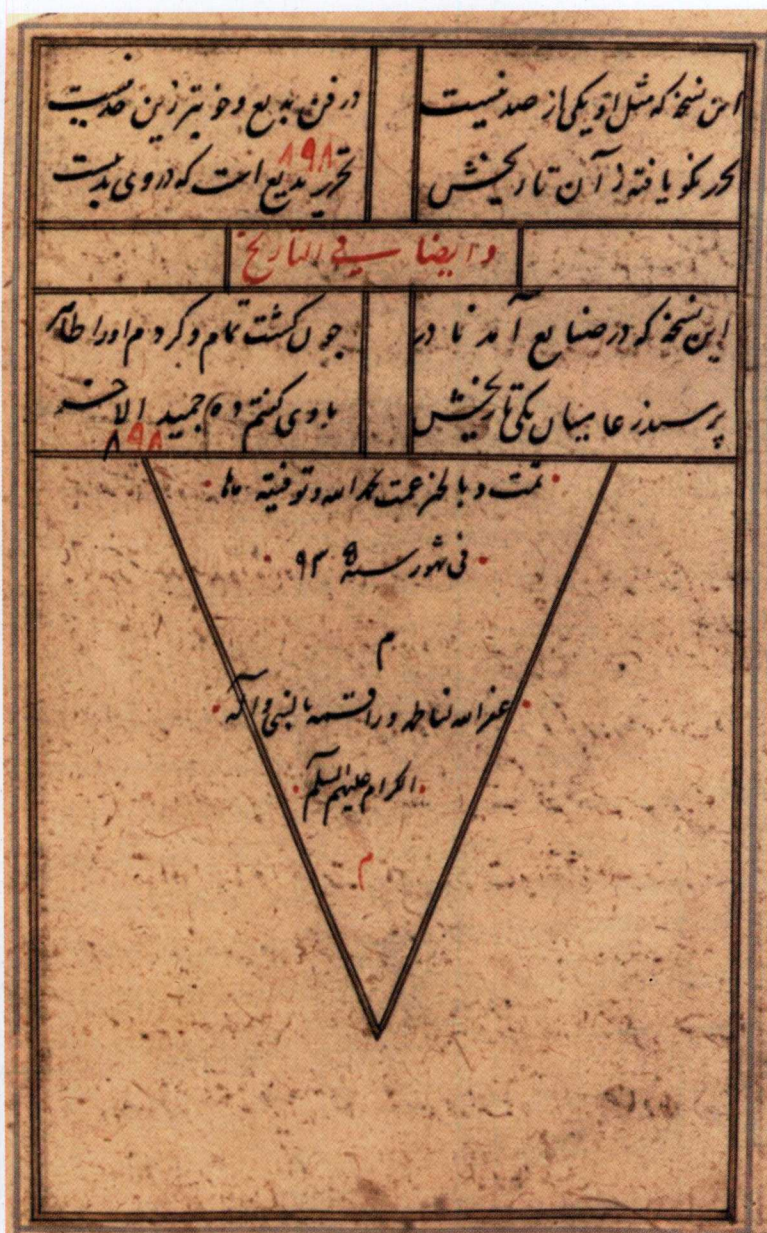 این نسخه که مثل او یکی از صد نیست
در فن بدیع و خوبتر زین حد نیست
یافته ز آن تاریخش
۸۹۸
تحریر بدیع است که در وی بد نیست
و ایضا فی التاریخ
این نسخه که در صنایع آمد نادر
چون گشت تمام و کردم او را ظاهر
پرسید ز عاییان یکی تاریخش
با وی گفتم الاخر
۸۹۸
تمت و بالخیر عمت بحمد الله و توفیقه
فی شهور سنه ۹۳۵
م
غفر الله لناظمه و راقمه بالنبی و آله
الکرام علیهم السلم
م